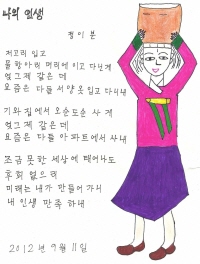 나의 인생
정이분
저고리 입고
물항아리 머리에 이고 다닌게
엊그제 같은데
요즘은 다들 서양옷 입고 다니네
기와집에서 오순도순 사게
엊그제 같은데
요즘은 다들 아파트에서 사네
조금 못한 세상에 태어나도
후회 없으리
미래는 내가 만들어가니
내 인생 만족하네
2012년 9월 11일